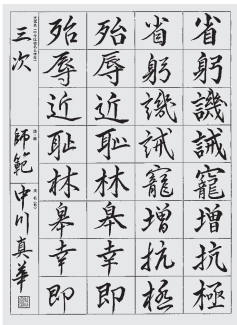 省躬譏誡寵増抗極
省躬譏誡寵増抗極
殆辱近耻林皐幸即
殆辱近耻林皐幸即
三次 師範 中川真華